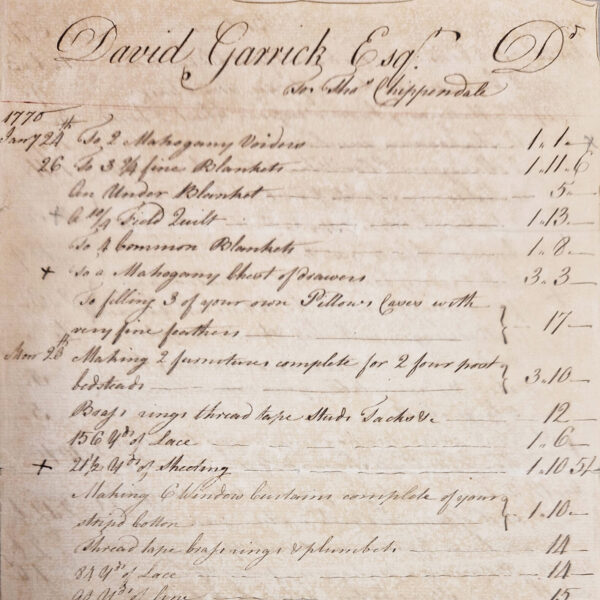 David Garrick Esqr. Dr
To Thos Chippendale
1770
Jany 24th To 2 Mahogany Voiders 1 „ 1 „ —
26 To 3 9/4 fine Blankets 1 „ 11 „ 6
An Under Blanket 5 —
+ A 10/4 Field Quilt 1 „ 13 —
To 4 Common Blankets 1 „ 8 —
+ To a Mahogany Chest of drawers 3 „ 3 —
To filling 3 of your own Pillow Cases with
very fine feathers 17 —
26th Making 2 furnitures complete for 2 four post
bedsteads 3 „ 10 —
Brass rings thread tape Studs Tacks &c 12 —
156 Yds of Lace 1 „ 6 —
+ 21½ Yds of Sheeting 1 „ 10
Making 6 Window Curtains complete of your
stripd Cotton 1 „ 10 „ —
Thread tape brass rings & plumbets 14 —
84 Yds of Lace 14 —
Yds of 15